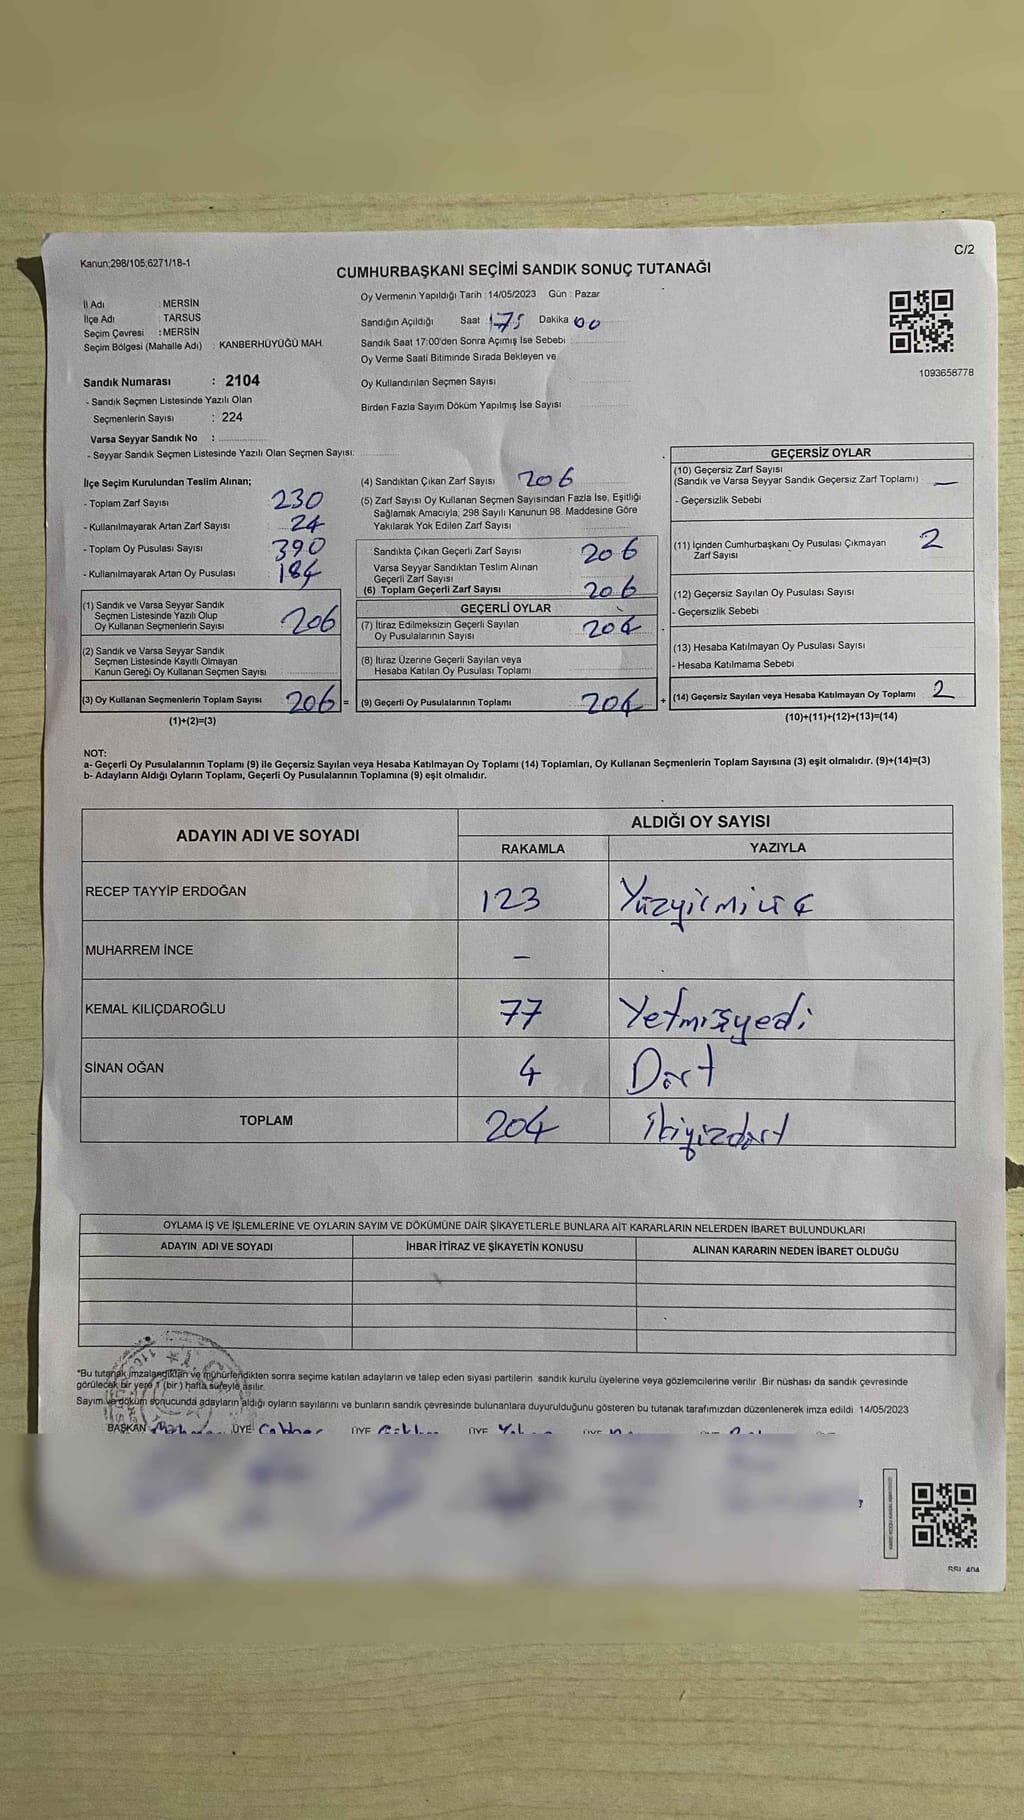 Kanun:298/105,6271/18-1
C/2
CUMHURBAŞKANI SEÇİMİ SANDIK SONUÇ TUTANAĞI
İl Adı : MERSİN
İlçe Adı : TARSUS
Seçim Çevresi : MERSİN
Seçim Bölgesi (Mahalle Adı) : KANBERHÜYÜĞÜ MAH.
Sandık Numarası : 2104
- Sandık Seçmen Listesinde Yazılı Olan
Seçmenlerin Sayısı : 224
Varsa Seyyar Sandık No :
- Seyyar Sandık Seçmen Listesinde Yazılı Olan Seçmen Sayısı:
Oy Vermenin Yapıldığı Tarih : 14/05/2023 Gün : Pazar
Sandığın Açıldığı Saat Dakika 00
Sandık Saat 17:00'den Sonra Açımış İse Sebebi
Oy Verme Saati Bitiminde Sırada Bekleyen ve
Oy Kullandırılan Seçmen Sayısı
Birden Fazla Sayım Döküm Yapılmış İse Sayısı
1093658778
İlçe Seçim Kurulundan Teslim Alınan;
- Toplam Zarf Sayısı 230
- Kullanılmayarak Artan Zarf Sayısı 24
- Toplam Oy Pusulası Sayısı 390
- Kullanılmayarak Artan Oy Pusulası 184
(1) Sandık ve Varsa Seyyar Sandık
Seçmen Listesinde Yazılı Olup
Oy Kullanan Seçmenlerin Sayısı 206
(2) Sandık ve Varsa Seyyar Sandık
Seçmen Listesinde Kayıtlı Olmayan
Kanun Gereği Oy Kullanan Seçmen Sayısı
(3) Oy Kullanan Seçmenlerin Toplam Sayısı 206 =
(1)+(2)=(3)
(4) Sandıktan Çıkan Zarf Sayısı 206
(5) Zarf Sayısı Oy Kullanan Seçmen Sayısından Fazla İse, Eşitliği
Sağlamak Amacıyla, 298 Sayılı Kanunun 98. Maddesine Göre
Yakılarak Yok Edilen Zarf Sayısı
Sandıkta Çıkan Geçerli Zarf Sayısı 206
Varsa Seyyar Sandıktan Teslim Alınan
Geçerli Zarf Sayısı
(6) Toplam Geçerli Zarf Sayısı 206
GEÇERLİ OYLAR
(7) İtiraz Edilmeksizin Geçerli Sayılan
Oy Pusulalarının Sayısı 204
(8) İtiraz Üzerine Geçerli Sayılan veya
Hesaba Katılan Oy Pusulası Toplamı
(9) Geçerli Oy Pusulalarının Toplamı 204 +
GEÇERSİZ OYLAR
(10) Geçersiz Zarf Sayısı
(Sandık ve Varsa Seyyar Sandık Geçersiz Zarf Toplamı) —
- Geçersizlik Sebebi
(11) İçinden Cumhurbaşkanı Oy Pusulası Çıkmayan
Zarf Sayısı 2
(12) Geçersiz Sayılan Oy Pusulası Sayısı
- Geçersizlik Sebebi
(13) Hesaba Katılmayan Oy Pusulası Sayısı
- Hesaba Katılmama Sebebi
(14) Geçersiz Sayılan veya Hesaba Katılmayan Oy Toplamı 2
(10)+(11)+(12)+(13)=(14)
NOT:
a- Geçerli Oy Pusulalarının Toplamı (9) ile Geçersiz Sayılan veya Hesaba Katılmayan Oy Toplamı (14) Toplamları, Oy Kullanan Seçmenlerin Toplam Sayısına (3) eşit olmalıdır. (9)+(14)=(3)
b- Adayların Aldığı Oyların Toplamı, Geçerli Oy Pusulalarının Toplamına (9) eşit olmalıdır.
ADAYIN ADI VE SOYADI ALDIĞI OY SAYISI
RAKAMLA YAZIYLA
RECEP TAYYİP ERDOĞAN 123 Yüzyirmiüç
MUHARREM İNCE –
KEMAL KILIÇDAROĞLU 77 Yetmişyedi
SİNAN OĞAN 4 Dört
TOPLAM 204 ikiyüzdört
OYLAMA İŞ VE İŞLEMLERİNE VE OYLARIN SAYIM VE DÖKÜMÜNE DAİR ŞİKAYETLERLE BUNLARA AİT KARARLARIN NELERDEN İBARET BULUNDUKLARI
ADAYIN ADI VE SOYADI İHBAR İTİRAZ VE ŞİKAYETİN KONUSU ALINAN KARARIN NEDEN İBARET OLDUĞU
*Bu tutanak imzalandıktan ve mühürlendikten sonra seçime katılan adayların ve talep eden siyasi partilerin sandık kurulu üyelerine veya gözlemcilerine verilir. Bir nüshası da sandık çevresinde
görülecek bir yere 1 (bir) hafta süreyle asılır.
Sayım ve döküm sonucunda adayların aldığı oyların sayılarını ve bunların sandık çevresinde bulunanlara duyurulduğunu gösteren bu tutanak tarafımızdan düzenlenerek imza edildi. 14/05/2023
BAŞKAN ÜYE ÜYE ÜYE